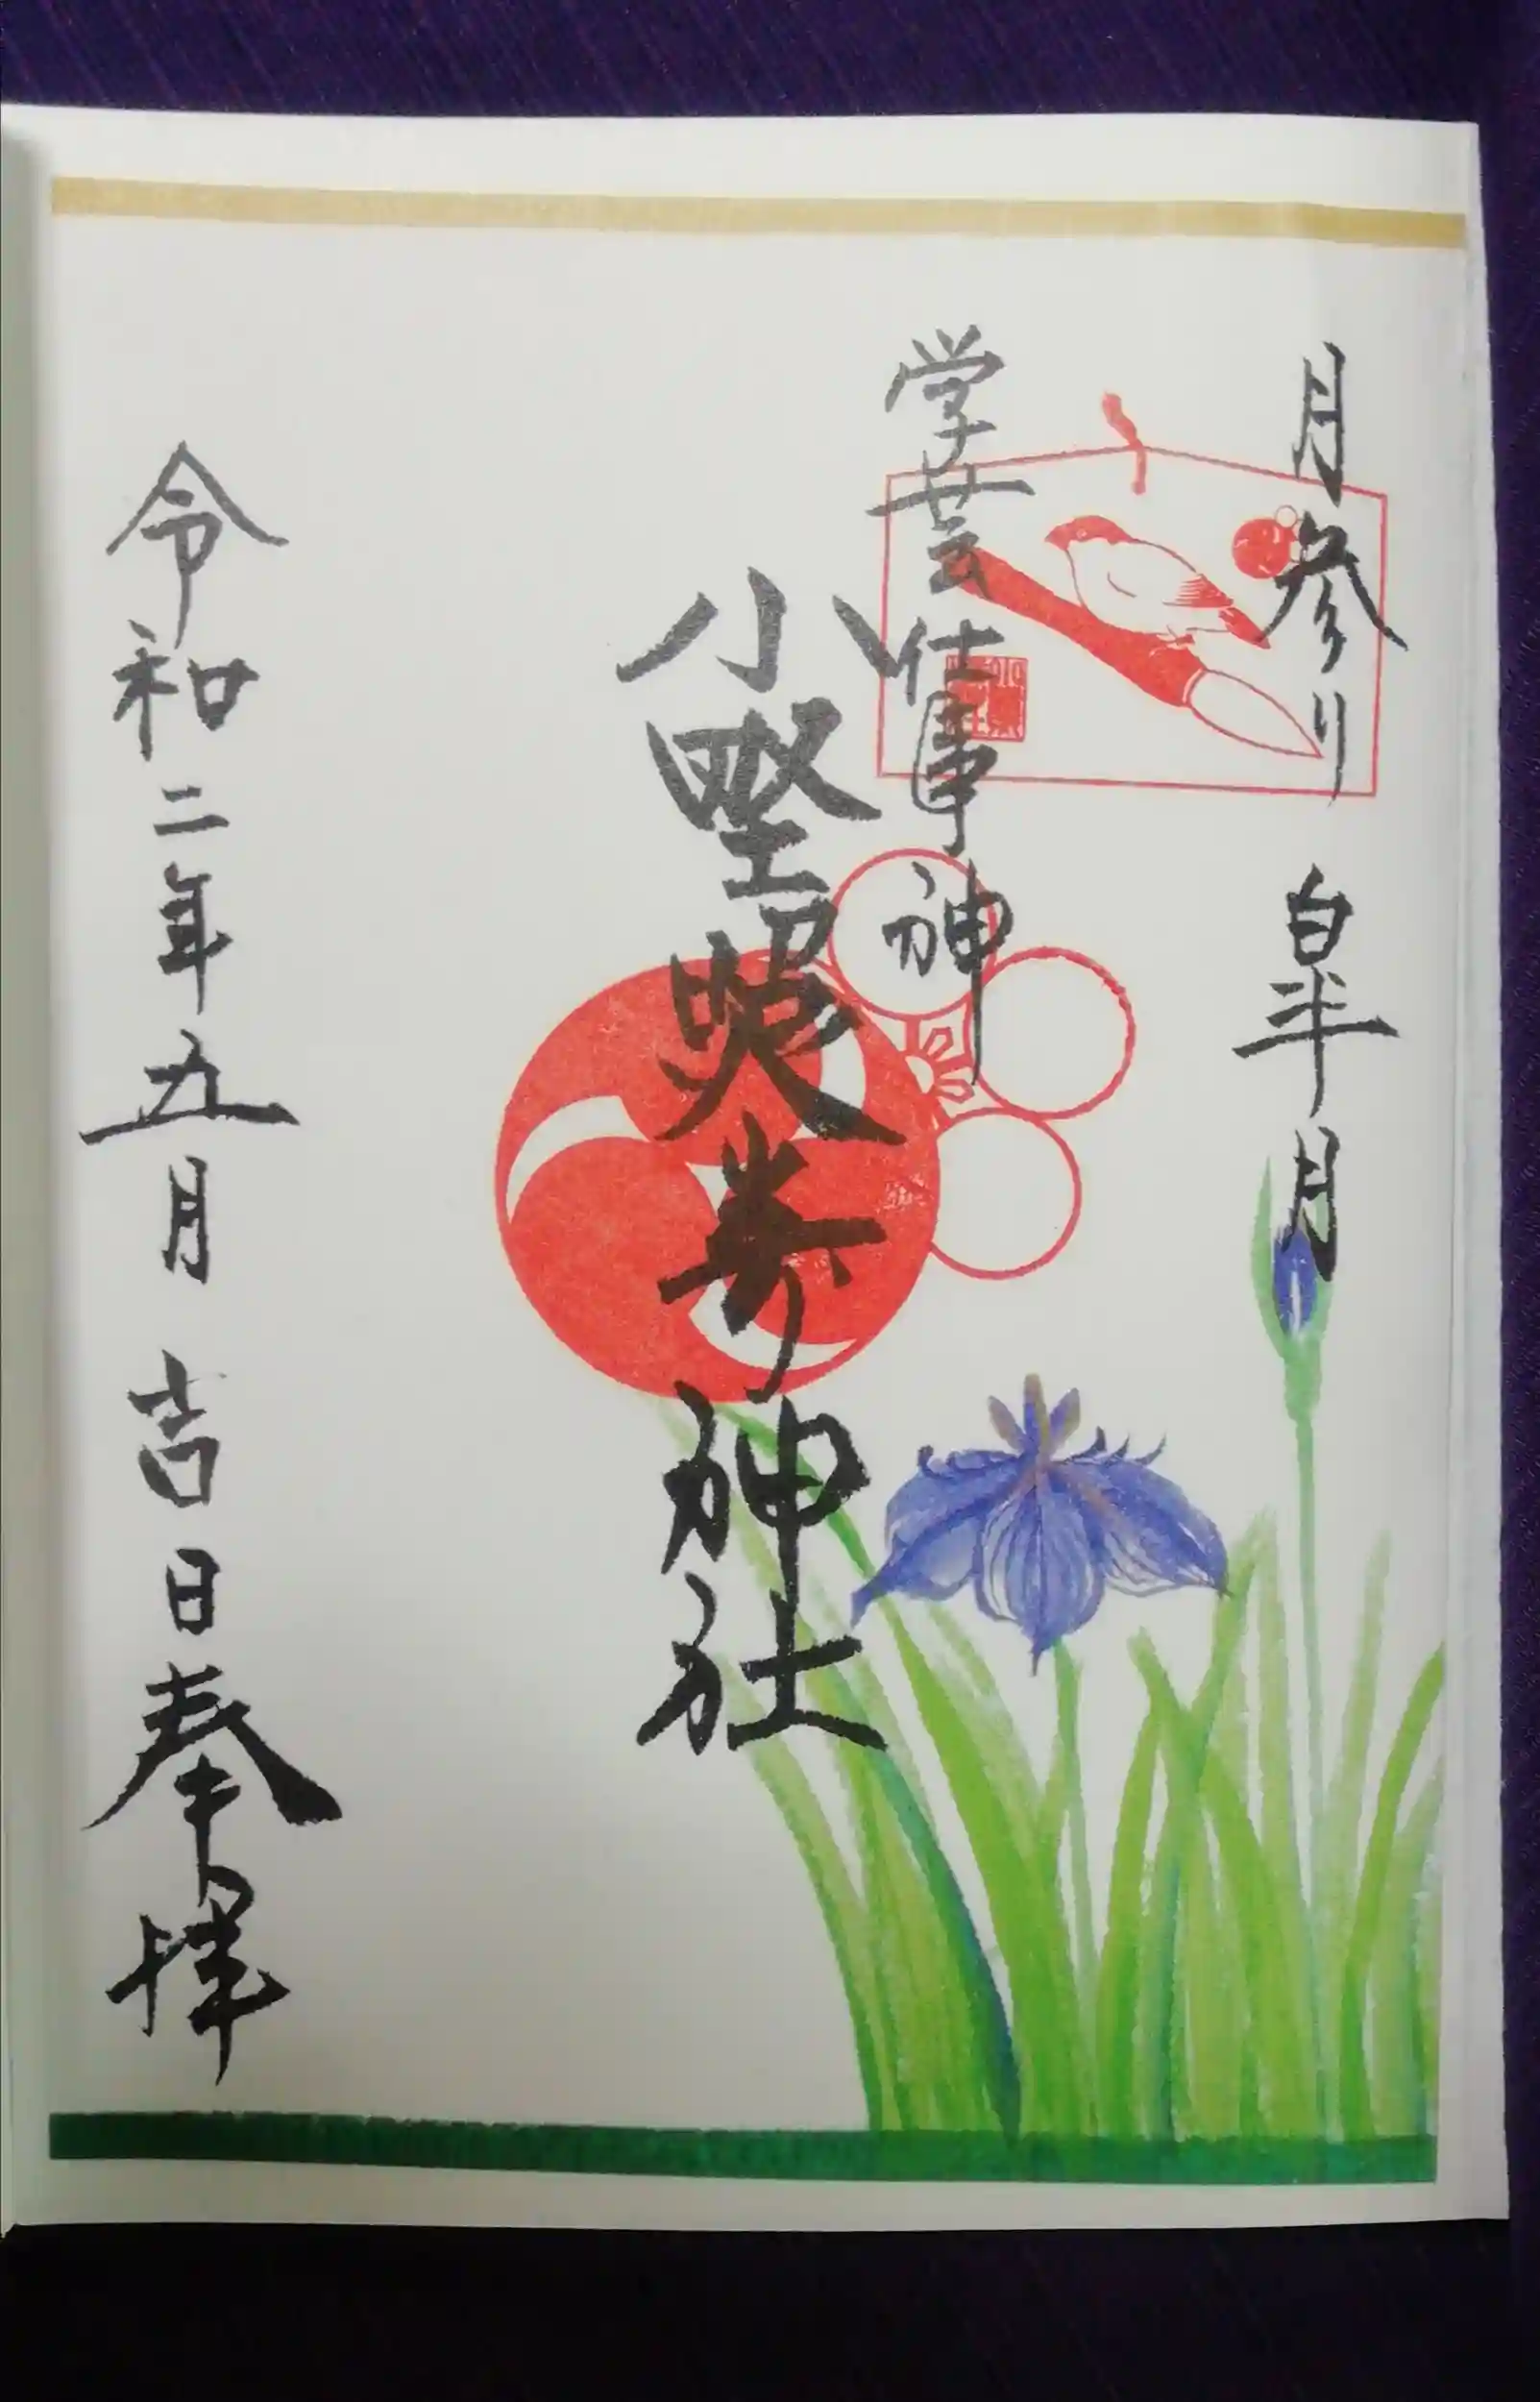 月参り 皐月
学芸仕事神
小野照崎神社
令和二年五月吉日奉拝